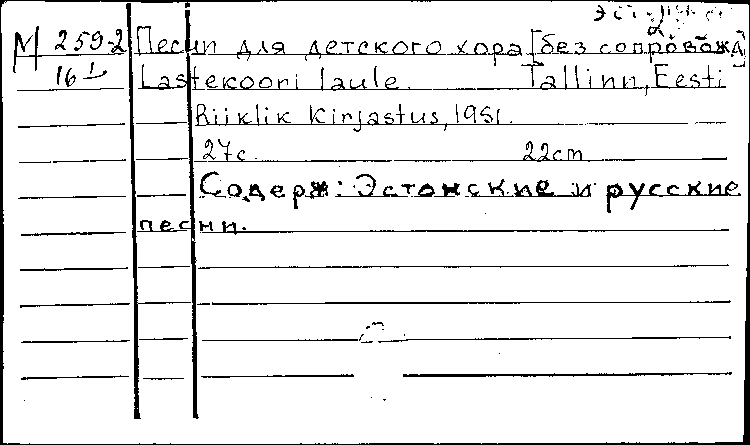 М 259-2 Песни для детского хора [без сопровожд]
16 1 Lastekoori laule. Tallinn, Eesti
Riiklik Kirjastus, 1951.
27с. 22cm
Содерж: Эстонские и русские
песни.